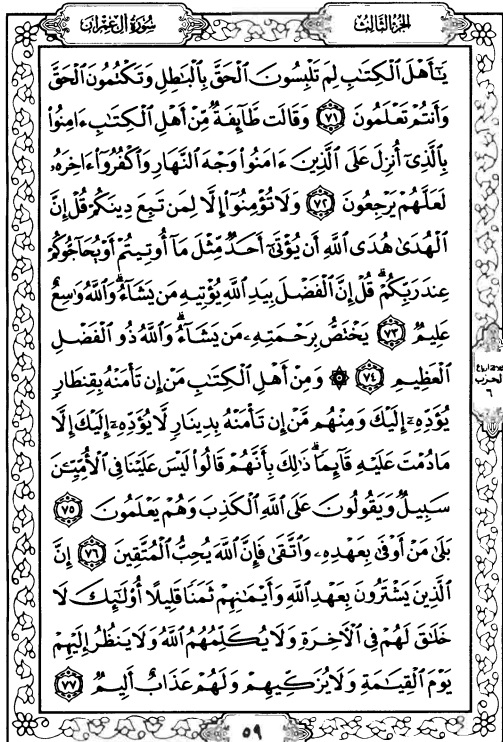 سورة آل عمران
الجزء الثالث
يَٰٓأَهْلَ ٱلْكِتَٰبِ لِمَ تَلْبِسُونَ ٱلْحَقَّ بِٱلْبَٰطِلِ وَتَكْتُمُونَ ٱلْحَقَّ
وَأَنتُمْ تَعْلَمُونَ ٧١ وَقَالَت طَّآئِفَةٌ مِّنْ أَهْلِ ٱلْكِتَٰبِ ءَامِنُوا۟
بِٱلَّذِىٓ أُنزِلَ عَلَى ٱلَّذِينَ ءَامَنُوا۟ وَجْهَ ٱلنَّهَارِ وَٱكْفُرُوٓا۟ ءَاخِرَهُۥ
لَعَلَّهُمْ يَرْجِعُونَ ٧٢ وَلَا تُؤْمِنُوٓا۟ إِلَّا لِمَن تَبِعَ دِينَكُمْ قُلْ إِنَّ
ٱلْهُدَىٰ هُدَى ٱللَّهِ أَن يُؤْتَىٰٓ أَحَدٌ مِّثْلَ مَآ أُوتِيتُمْ أَوْ يُحَآجُّوكُمْ
عِندَ رَبِّكُمْ ۗ قُلْ إِنَّ ٱلْفَضْلَ بِيَدِ ٱللَّهِ يُؤْتِيهِ مَن يَشَآءُ ۗ وَٱللَّهُ وَٰسِعٌ
عَلِيمٌ ٧٣ يَخْتَصُّ بِرَحْمَتِهِۦ مَن يَشَآءُ ۗ وَٱللَّهُ ذُو ٱلْفَضْلِ
ٱلْعَظِيمِ ٧٤ ۞ وَمِنْ أَهْلِ ٱلْكِتَٰبِ مَنْ إِن تَأْمَنْهُ بِقِنطَارٍ
يُؤَدِّهِۦٓ إِلَيْكَ وَمِنْهُم مَّنْ إِن تَأْمَنْهُ بِدِينَارٍ لَّا يُؤَدِّهِۦٓ إِلَيْكَ إِلَّا
مَا دُمْتَ عَلَيْهِ قَآئِمًا ۗ ذَٰلِكَ بِأَنَّهُمْ قَالُوا۟ لَيْسَ عَلَيْنَا فِى ٱلْأُمِّيِّۦنَ
سَبِيلٌ وَيَقُولُونَ عَلَى ٱللَّهِ ٱلْكَذِبَ وَهُمْ يَعْلَمُونَ ٧٥
بَلَىٰ مَنْ أَوْفَىٰ بِعَهْدِهِۦ وَٱتَّقَىٰ فَإِنَّ ٱللَّهَ يُحِبُّ ٱلْمُتَّقِينَ ٧٦ إِنَّ
ٱلَّذِينَ يَشْتَرُونَ بِعَهْدِ ٱللَّهِ وَأَيْمَٰنِهِمْ ثَمَنًا قَلِيلًا أُو۟لَٰٓئِكَ لَا
خَلَٰقَ لَهُمْ فِى ٱلْءَاخِرَةِ وَلَا يُكَلِّمُهُمُ ٱللَّهُ وَلَا يَنظُرُ إِلَيْهِمْ
يَوْمَ ٱلْقِيَٰمَةِ وَلَا يُزَكِّيهِمْ وَلَهُمْ عَذَابٌ أَلِيمٌ ٧٧
الحزب
٦
٥٩